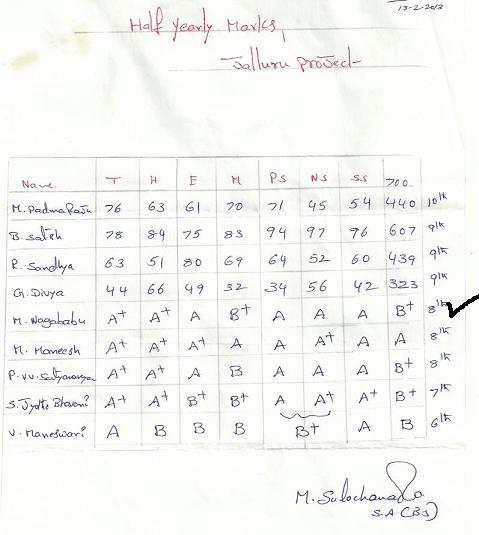 13-2-2013
Half yearly Marks,
Jalluru project
Name T H E M PS NS SS 700
M. PadmaRaju 76 63 61 70 71 45 54 440 10th
B. Satish 78 84 75 83 94 97 96 607 9th
R. Sandhya 63 51 80 69 64 52 60 439 9th
G. Divya 44 66 49 32 34 56 42 323 9th
M. Nagababu A+ A+ A B+ A A A B+ 8th
M. Maneesh A+ A+ A A+ A A+ A A 8th
P.V.V. Satyanarayana A+ A+ A B A A A B+ 8th
S. Jyothi Bhavani A+ A+ B+ B+ A A+ A+ B+ 7th
V. Maneswari A B B B B+ A B 6th
M. Sulochana
S.A (B.S)